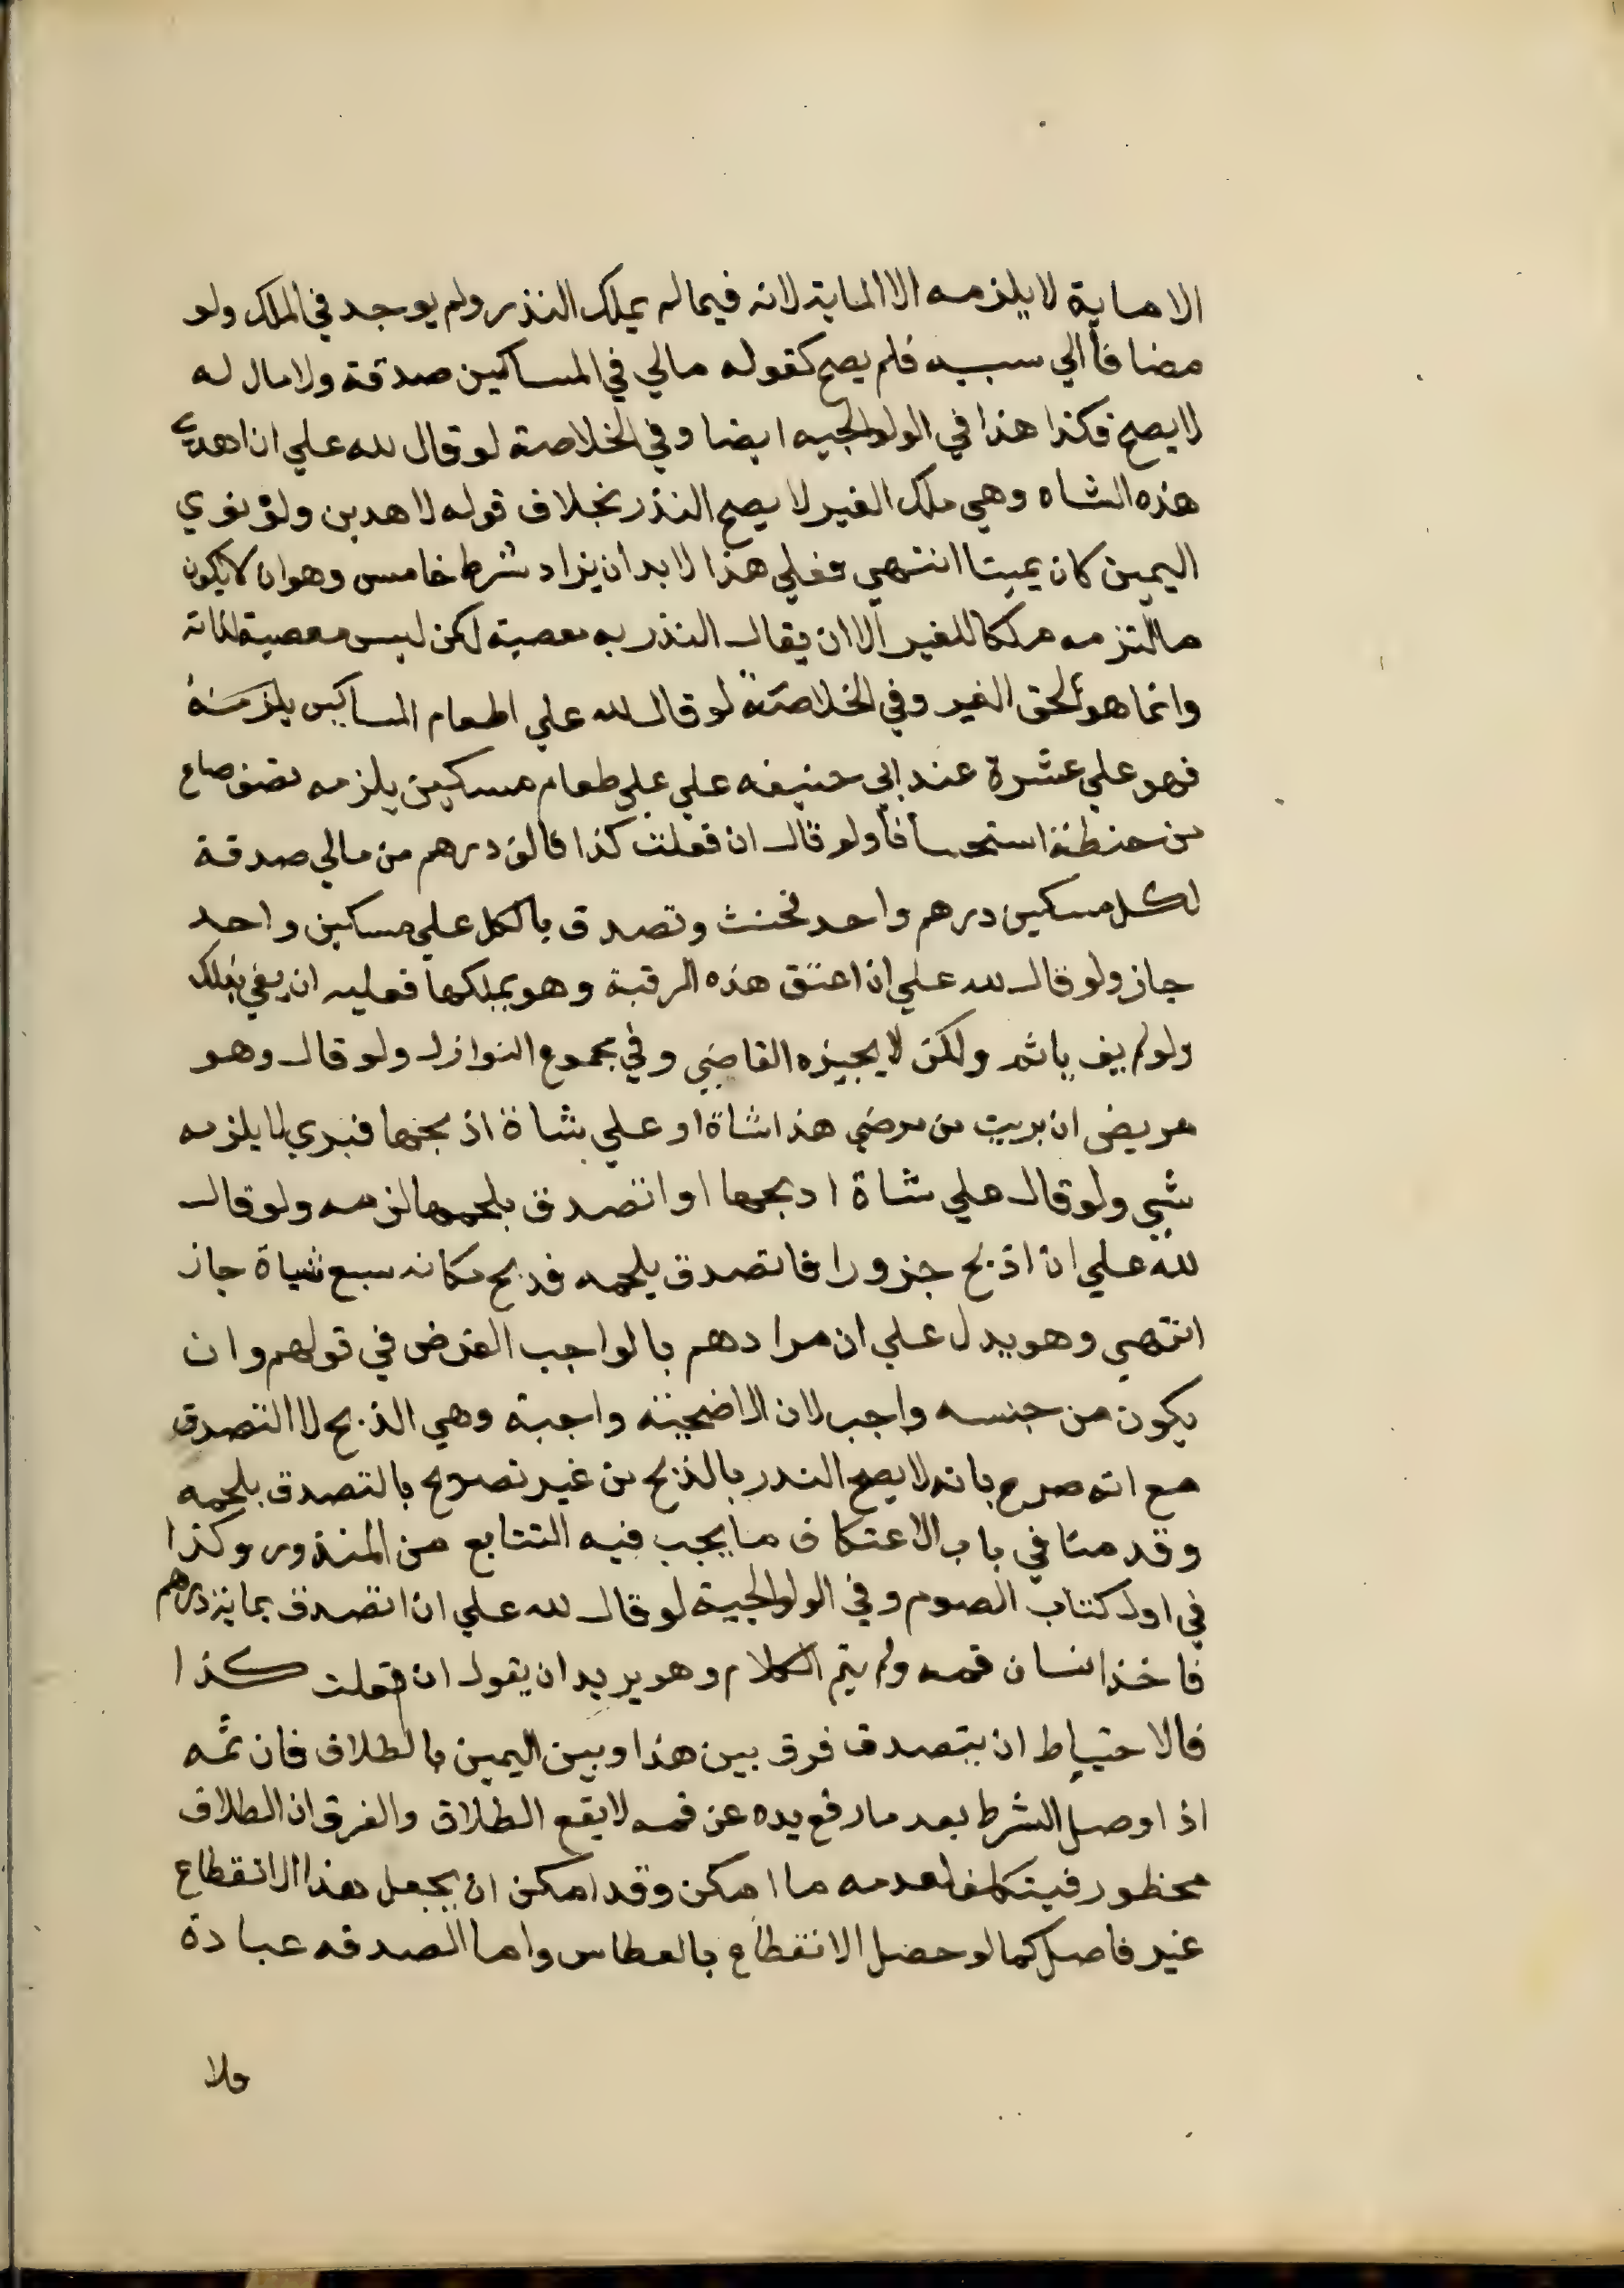 الا ماية لا يلزمه الا الماية لانه فيما لم يملك النذر ولم يوجد في الملك ولو
مضافا الي سببه فلم يصح كقوله مالي في المساكين صدقة ولا مال له
لا يصح فكذا هذا في الولوالجيه ايضا وفي الخلاصة لو قال لله علي ان اهدي
هذه الشاه وهي ملك الغير لا يصح النذر بخلاف قوله لاهدين ولو نوي
اليمين كان يمينا انتهي فعلي هذا لا بد ان يزاد شرط خامس وهو ان لا يكون
ما التزمه ملكا للغير الا ان يقال النذر به معصية لكن ليس معصية لذاته
وانما هو لحق الغير وفي الخلاصة لو قال لله علي اطعام المساكين يلزمه
فهو علي عشرة عند ابي حنيفه علي علي طعام مسكين يلزمه نصف صاع
من حنطة استحسافا ولو قال ان فعلت كذا فالف درهم من مالي صدقة
لكل مسكين درهم واحد فحنث وتصدق بالكل علي مسكين واحد
جاز ولو قال لله علي ان اعتق هذه الرقبة وهو يملكها فعليه ان يفي بذلك
ولو لم يف ياثم ولكن لا يجيزه القاضي وفي مجموع النوازل ولو قال وهو
مريض ان بريت من مرضي هذا شاة او علي شاة اذبحها فبري لا يلزمه
شي ولو قال علي شاة اذبحها او اتصدق بلحمها لزمه ولو قال
لله علي ان اذبح جزورا فاتصدق بلحمه فذبح مكانه سبع شياة جاز
انتهي وهو يدل علي ان مرادهم بالواجب الفرض في قولهم وان
يكون من جنسه واجب لان الاضحية واجبة وهي الذبح لا التصدق
مع انه صرح بانه لا يصح النذر بالذبح من غير تصريح بالتصدق بلحمه
وقدمنا في باب الاعتكاف ما يجب فيه التتابع من المنذور وكذا
في اول كتاب الصوم وفي الولوالجية لو قال لله علي ان اتصدق بماية درهم
فاخذ انسان فمه ولم يتم الكلام وهو يريد ان يقول ان فعلت كذا
فالاحتياط ان يتصدق فرق بين هذا وبين اليمين بالطلاق فان ثمه
اذا وصل الشرط بعد ما رفع يده عن فمه لا يقع الطلاق والفرق ان الطلاق
محظور فيتكلف لعدمه ما امكن وقد امكن ان يجعل هذا الانقطاع
غير فاصل كما لو حصل الانقطاع بالعطاس واما الصدقه عبادة
فلا